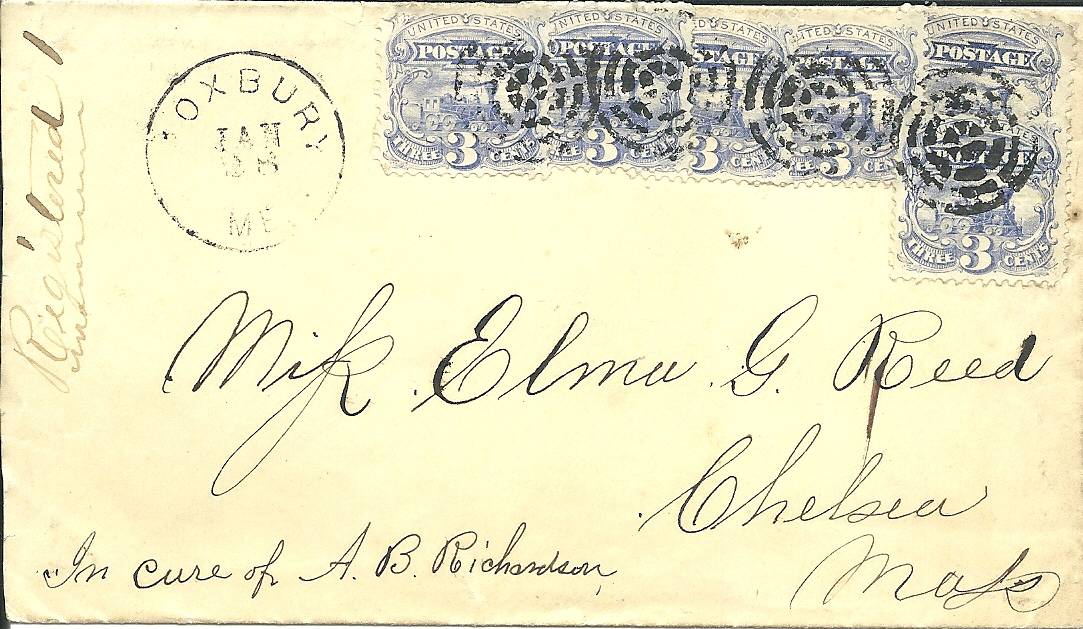 Registered 1
UNITED STATES UNITED STATES UNITED STATES UNITED STATES UNITED STATES
POSTAGE POSTAGE POSTAGE POSTAGE POSTAGE
THREE 3 CENTS 3 3 3
STATES
THREE 3 CENTS
ROXBURY
JAN
28
ME
Miſs Elma G. Reed
Chelsea
Maſs
In care of A. B. Richardson,